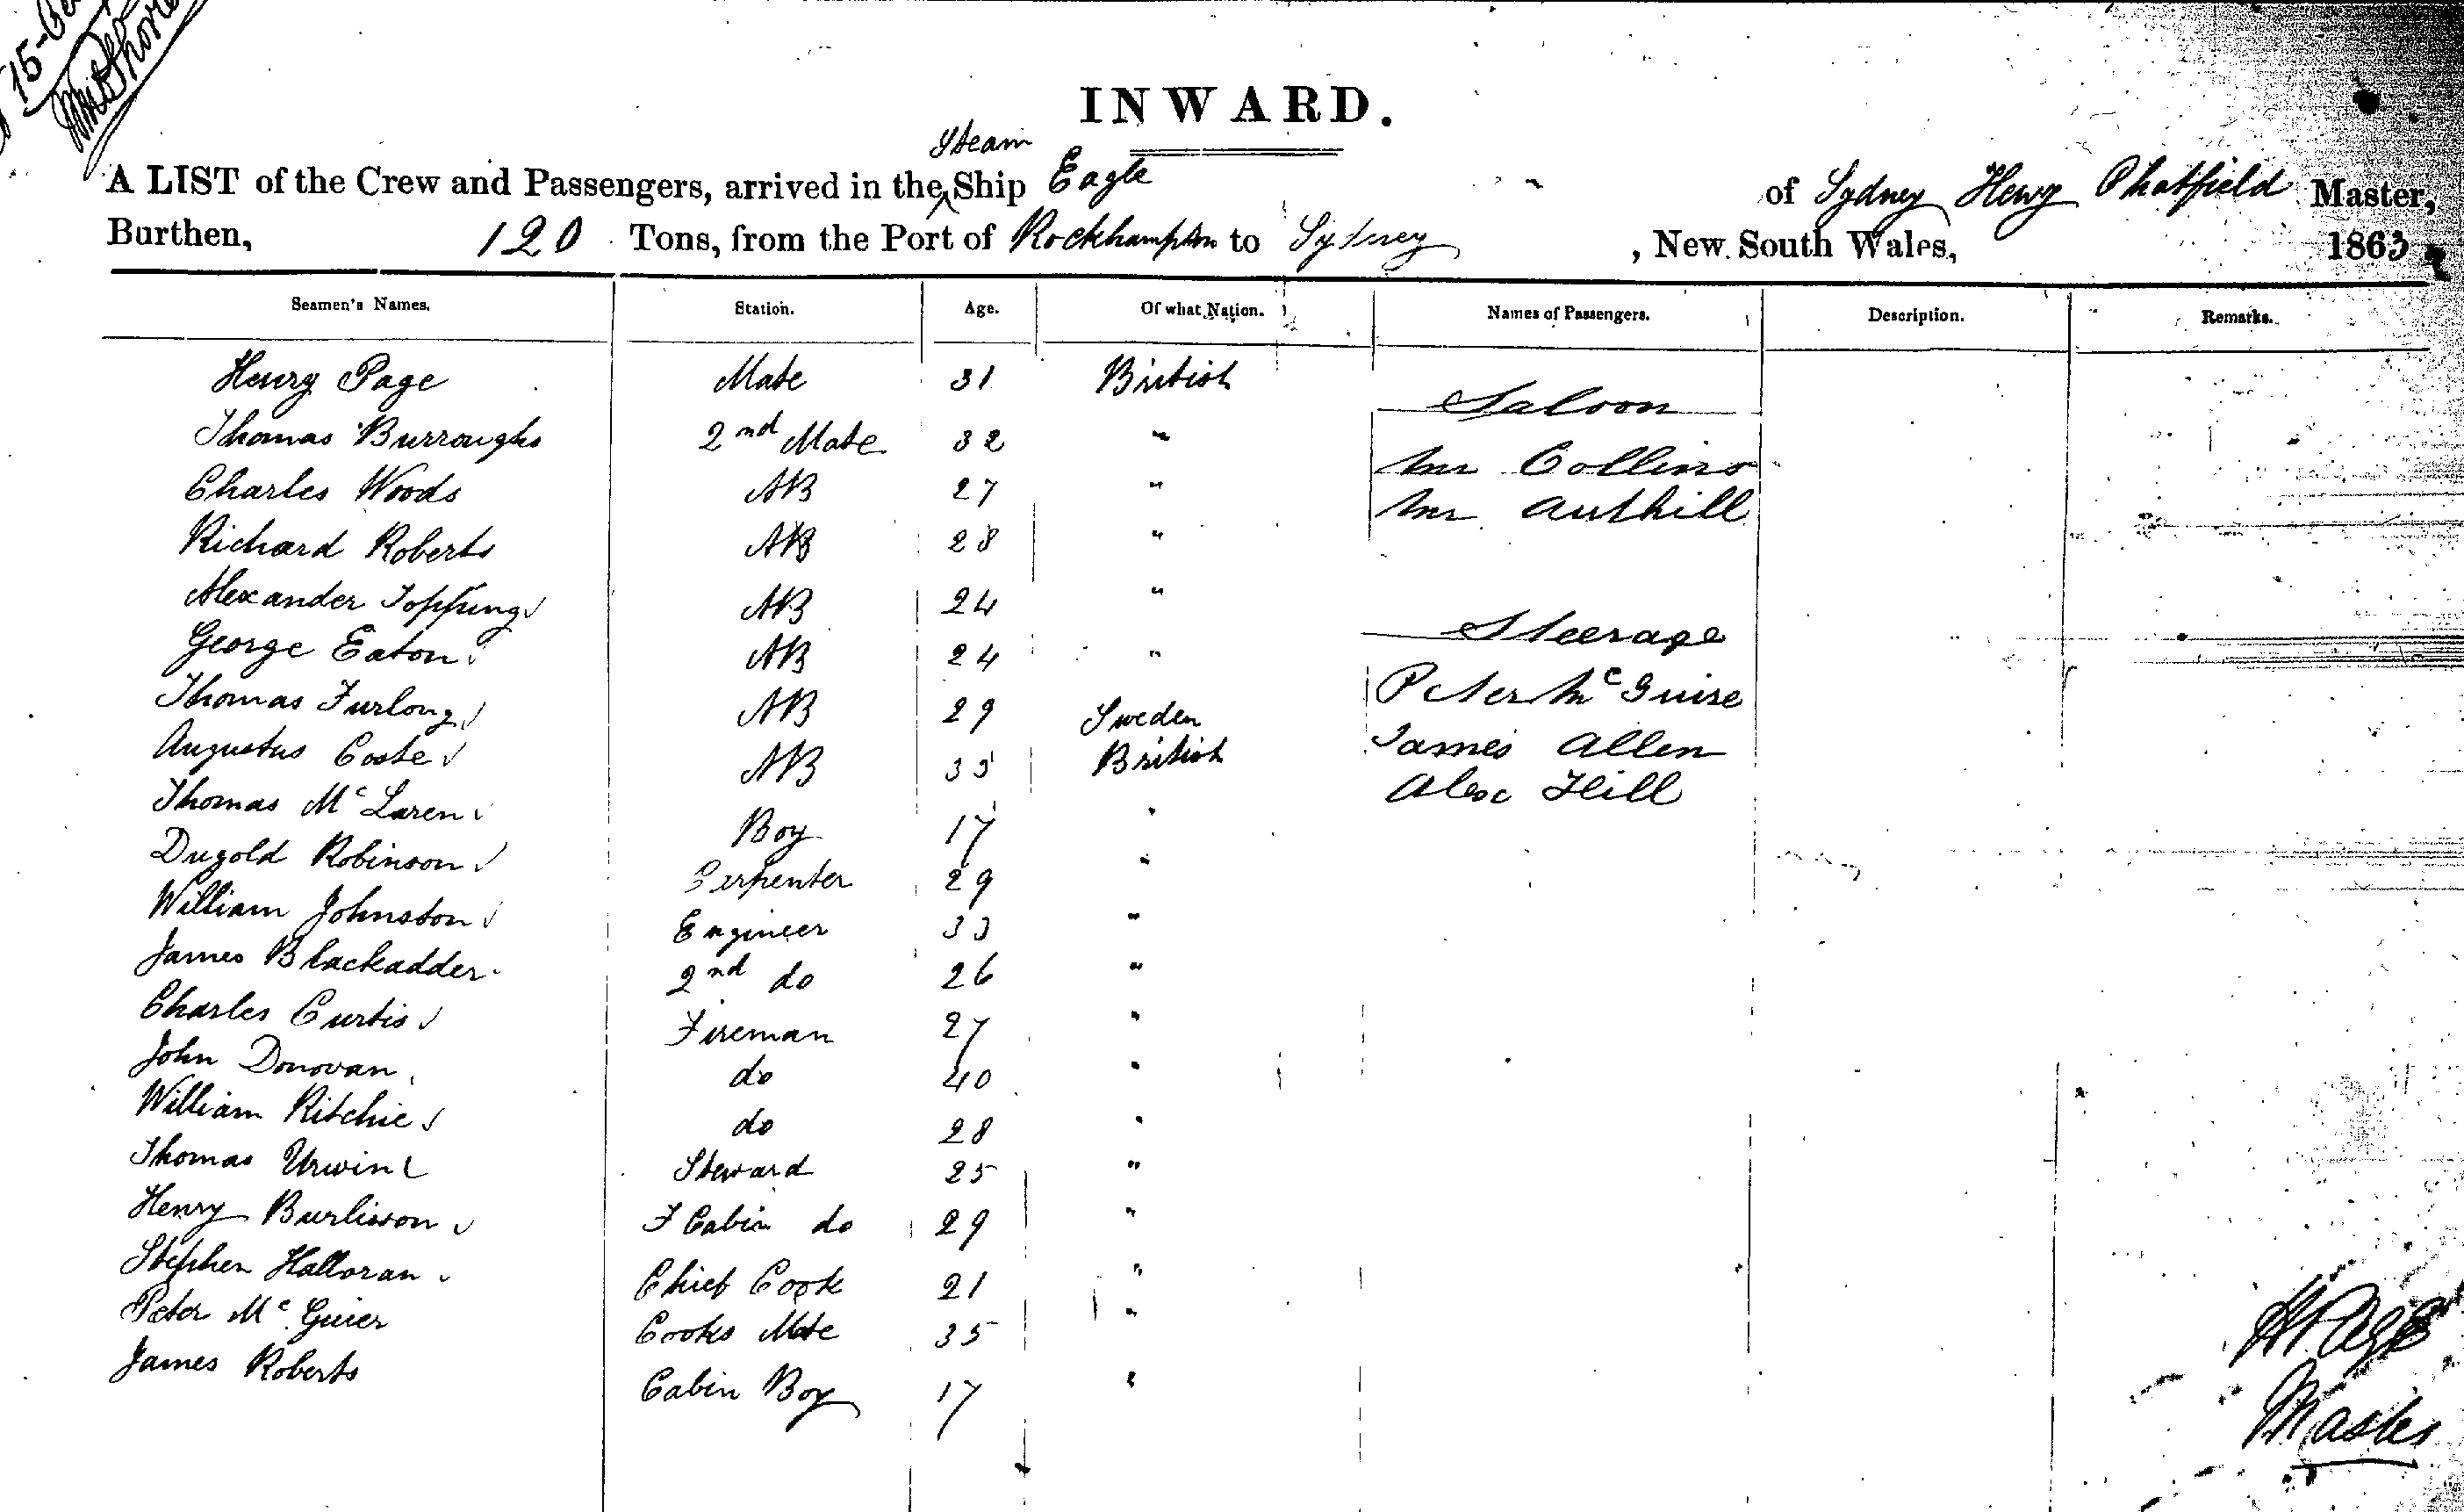 15
INWARD.
Steam
A LIST of the Crew and Passengers, arrived in the Ship Eagle of Sydney Henry Chatfield Master,
Burthen, 120 Tons, from the Port of Rockhampton to Sydney, New South Wales, 1863
Seamen's Names. Station. Age. Of what Nation. Names of Passengers. Description. Remarks.
Henry Page Mate 31 British
Saloon
Thomas Burroughs 2nd Mate 32 "
Mr Collins
Charles Woods AB 27 "
Mr Authill
Richard Roberts AB 28 "
Alexander Topping AB 24 "
Steerage
George Eaton AB 24 "
Peter McGuire
Thomas Furlong AB 29 Sweden
James Allen
Augustus Coste AB 35 British
Alex Hill
Thomas McLaren Boy 17 "
Dugold Robinson Carpenter 29 "
William Johnston Engineer 33 "
James Blackadder 2nd do 26 "
Charles Curtis Fireman 27 "
John Donovan do 40 "
William Ritchie do 28 "
Thomas Urwin Steward 25 "
Henry Burlisson F Cabin do 29 "
Stephen Halloran Chief Cook 21 "
Peter McGuier Cooks Mate 35 "
James Roberts Cabin Boy 17 "
H Page
Master